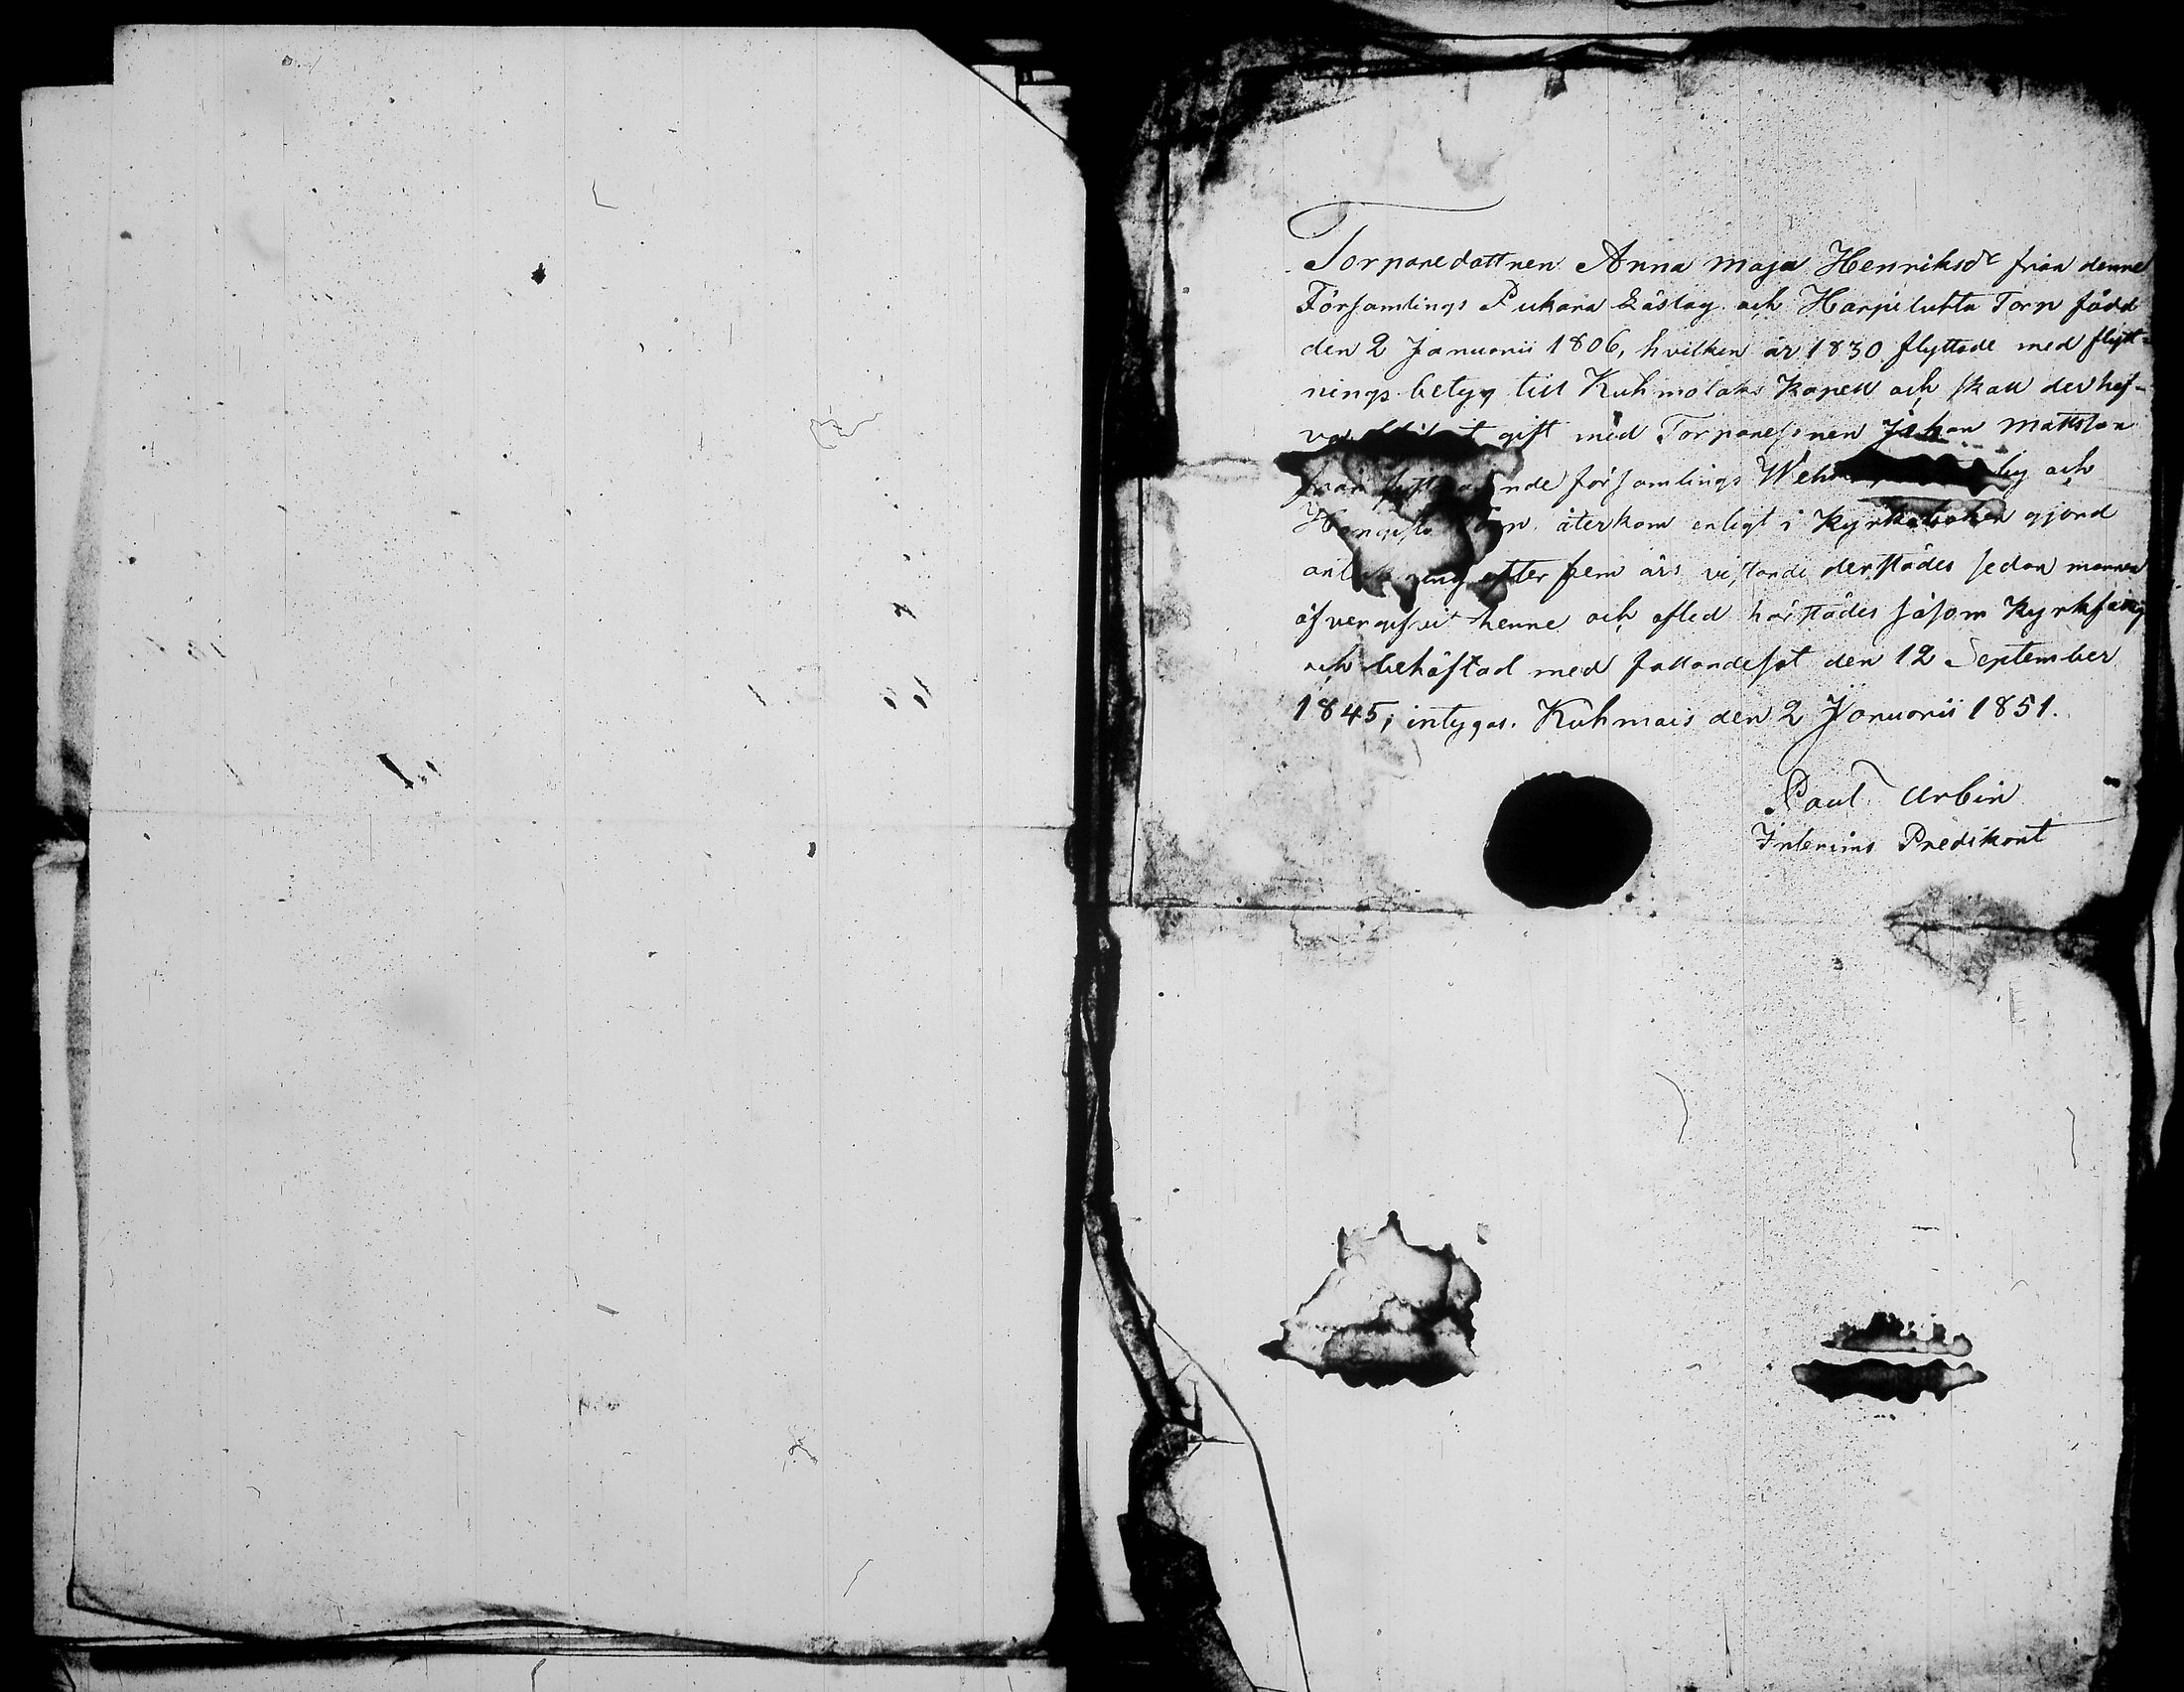 Torparedottren Anna Maja Henriksdr från denne
Församlings Pukara Låslag och Harpiluhta Torp född
den 2 Januarii 1806, hvilken år 1830 flyttade med flytt-
nings betyg till Kuhmolaks Kapell och skall der haf-
gift med Torparesonen Johan Mattsson
från församlings by och
Torp. återkom enligt i Kyrkoboken gjord
efter fem års vistande derstädes sedan mannen
öfvergifvit henne och afled härstädes såsom Kyrkhjon
och behäftad med fallandesot den 12 September
1845; intygas. Kuhmois den 2 Januarii 1851.
Paul Urbin
Interims Predikant